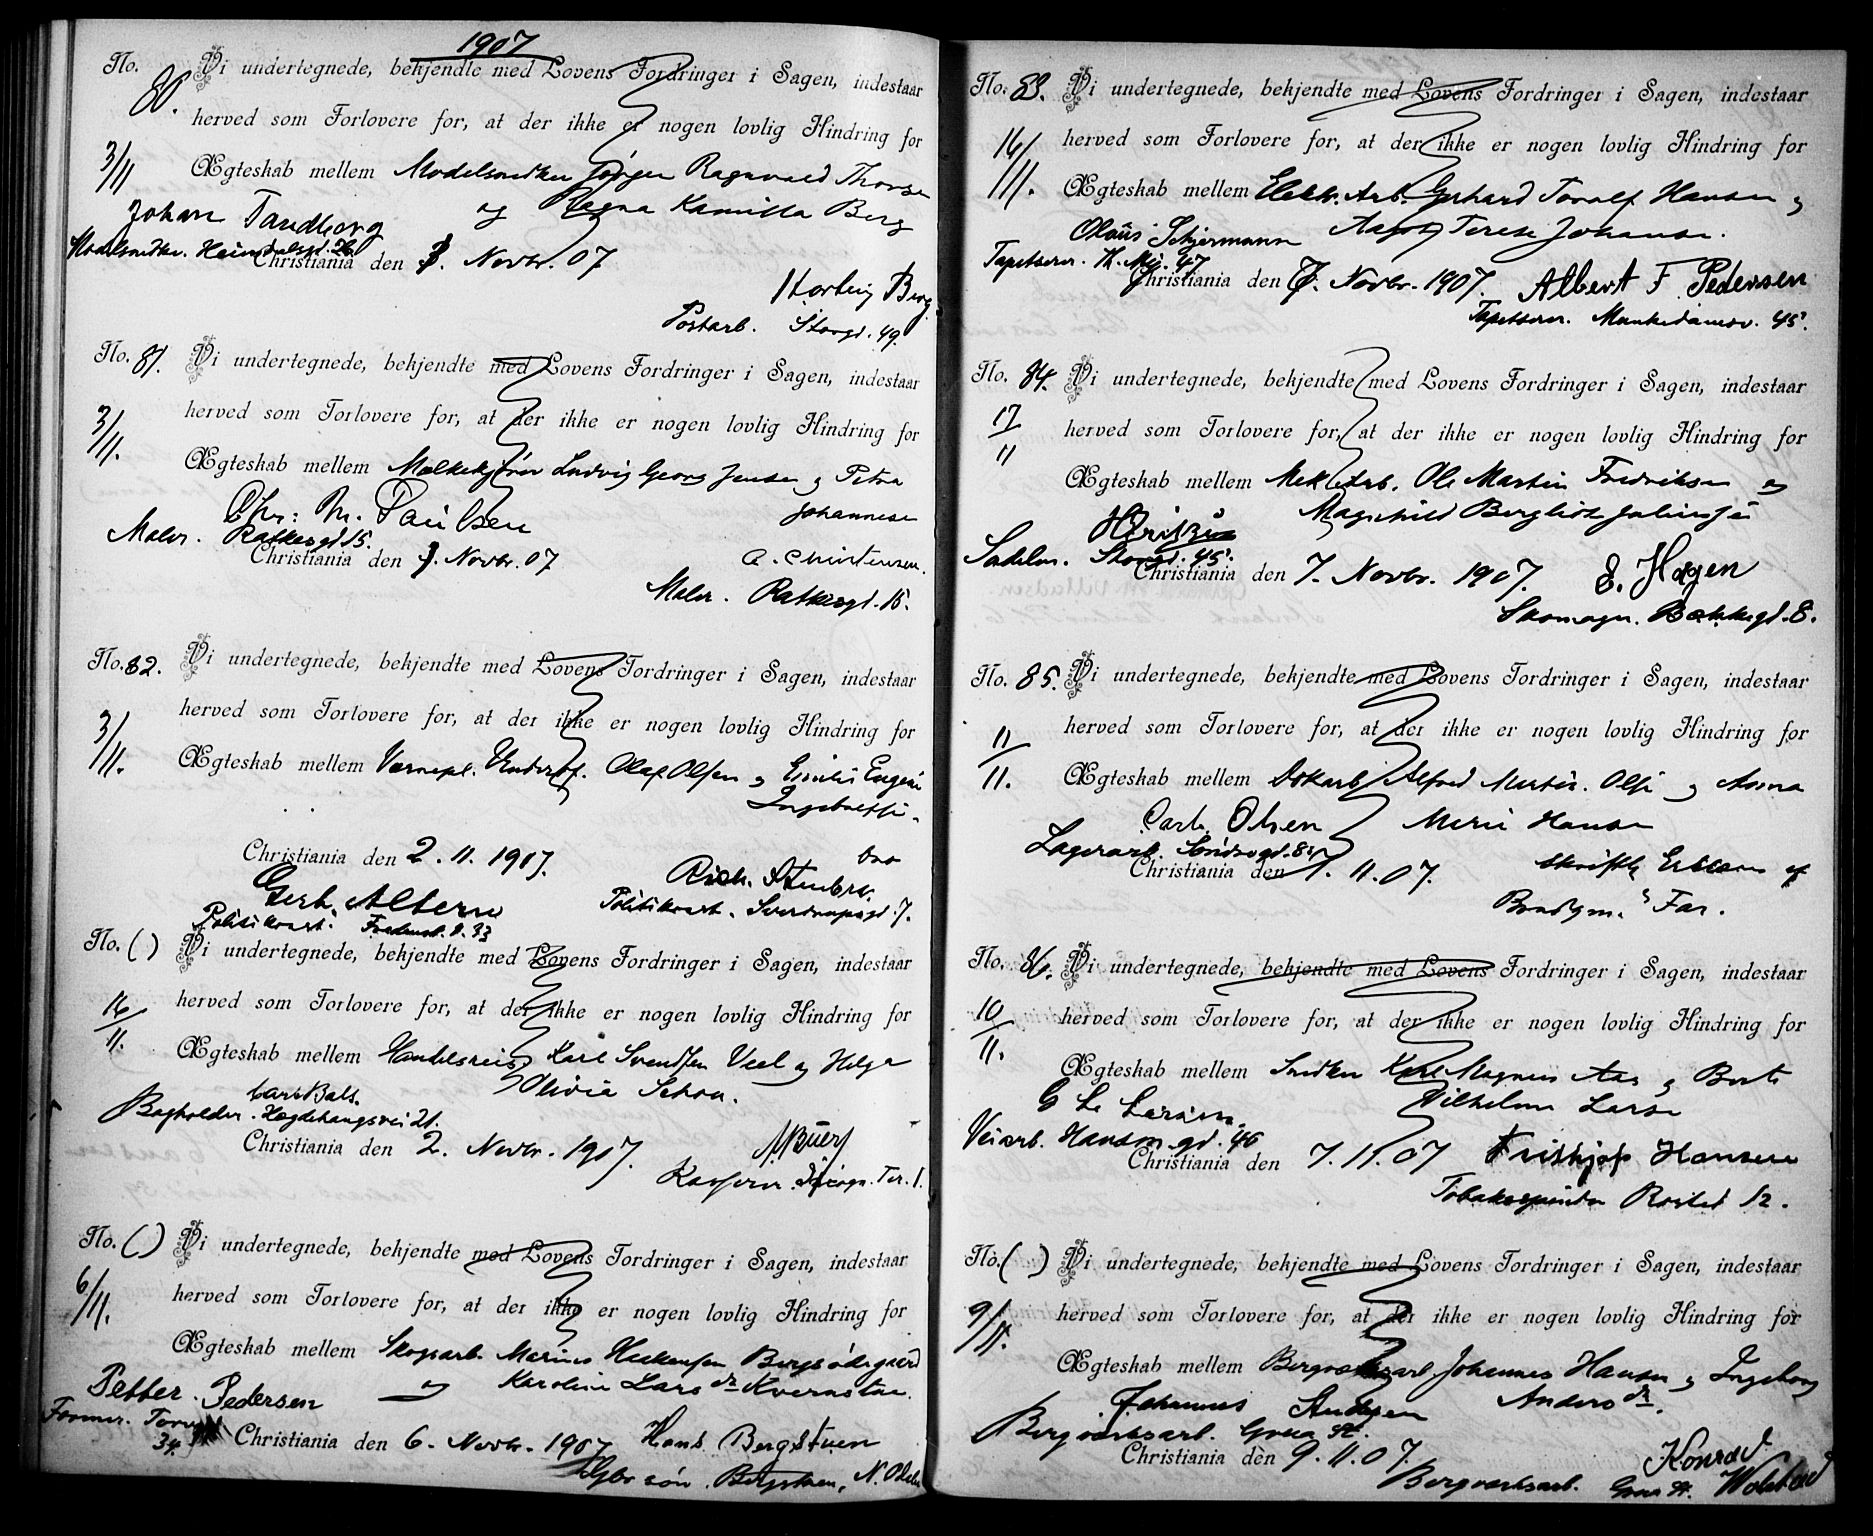 1907
No. 80. Vi undertegnede, bekjendte med Lovens Fordringer i Sagen, indestaar
herved som Forlovere for, at der ikke er nogen lovlig Hindring for
3/11 Ægteskab mellem Modelsnedker Jørgen Ragnvald Thorsen
Johan Tandberg og Ragna Kamilla Berg
Modelsnedker. Heimdalsgd.
Christiania den 3. Novbr. 07
Hartvig Berg
Postarb. Storgd. 49.
No. 81. Vi undertegnede, bekjendte med Lovens Fordringer i Sagen, indestaar
herved som Forlovere for, at der ikke er nogen lovlig Hindring for
3/11. Ægteskab mellem Mælkekjører Ludvig Georg Jensen og Petra
Chr: M. Paulsen Johannesen
Maler. Ratkesgd 15.
Christiania den 1. Novbr. 07 A. Christensen.
Maler. Ratkesgd. 15.
No. 82. Vi undertegnede, bekjendte med Lovens Fordringer i Sagen, indestaar
herved som Forlovere for, at der ikke er nogen lovlig Hindring for
3/11. Ægteskab mellem Vernepl. Underof. Olaf Olsen og Emilie Eugenie
Ingebretsen.
Christiania den 2. 11. 1907.
Gerh. Rich.
Politikonst. Politikonst. Sverdrupsgd. 7.
No. ( ) Vi undertegnede, bekjendte med Lovens Fordringer i Sagen, indestaar
herved som Forlovere for, at der ikke er nogen lovlig Hindring for
16/11. Ægteskab mellem Handelsreis. Karl Svendsen Veel og Helga
Carl Bals. Olivia Schou.
Bogholder. Hægdehaugsvei 21.
Christiania den 2. Novbr. 1907.
Kasserer.
No. ( ) Vi undertegnede, bekjendte med Lovens Fordringer i Sagen, indestaar
herved som Forlovere for, at der ikke er nogen lovlig Hindring for
6/11. Ægteskab mellem Skogsarb. Marius Haakensen Bergsødegaard
Petter Pedersen og Karoline Larsdr Kvernstuen
Former.
34. Christiania den 6. Novbr. 1907 Hans Bergstuen
Gbr søn. Bergstuen,
No. 83. Vi undertegnede, bekjendte med Lovens Fordringer i Sagen, indestaar
herved som Forlovere for, at der ikke er nogen lovlig Hindring for
16/11. Ægteskab mellem Elektr. Arb. Gerhard Toralf Hansen og
Olaus Schjermann Aagot Terese Johansen.
Tapetserer. Th. Mej. 47
Christiania den 7. Novbr. 1907. Albert F. Pedersen
Tapetserer. Munkedamsv. 45.
No. 84. Vi undertegnede, bekjendte med Lovens Fordringer i Sagen, indestaar
herved som Forlovere for, at der ikke er nogen lovlig Hindring for
17/11 Ægteskab mellem Mek. Arb. Ole Martin Fredriksen og
Magnhild Bergliot
Sadelm. Storgd. 45.
Christiania den 7. Novbr. 1907. E. Hagen
Skomager. Bakkegd. 8.
No. 85. Vi undertegnede, bekjendte med Lovens Fordringer i Sagen, indestaar
herved som Forlovere for, at der ikke er nogen lovlig Hindring for
11/11. Ægteskab mellem Dokarb. Alfred Martin Olsen og Anna
Carl Olsen Marie Hansen
Lagerarb.
Christiania den 7. 11. 07. skriftl. Erklæring af
Brudgm.s Far.
No. 86. Vi undertegnede, bekjendte med Lovens Fordringer i Sagen, indestaar
herved som Forlovere for, at der ikke er nogen lovlig Hindring for
10/11. Ægteskab mellem Snedker Karl Magnus Aas og Berte
Vilhelmine Larsen
Veiarb. Hausm. gd. 46
Christiania den 7. 11. 07 Frithjof Hansen
Tobakspinder
No. ( ) Vi undertegnede, bekjendte med Lovens Fordringer i Sagen, indestaar
herved som Forlovere for, at der ikke er nogen lovlig Hindring for
9/11. Ægteskab mellem Bergværksarb. Johannes Hansen og Ingeborg
Johannes Andersen Andersdr.
Bergværksarb. Grua St.
Christiania den 9. 11. 07. Konrad
Bergværksarb. Grua St. Wolstad